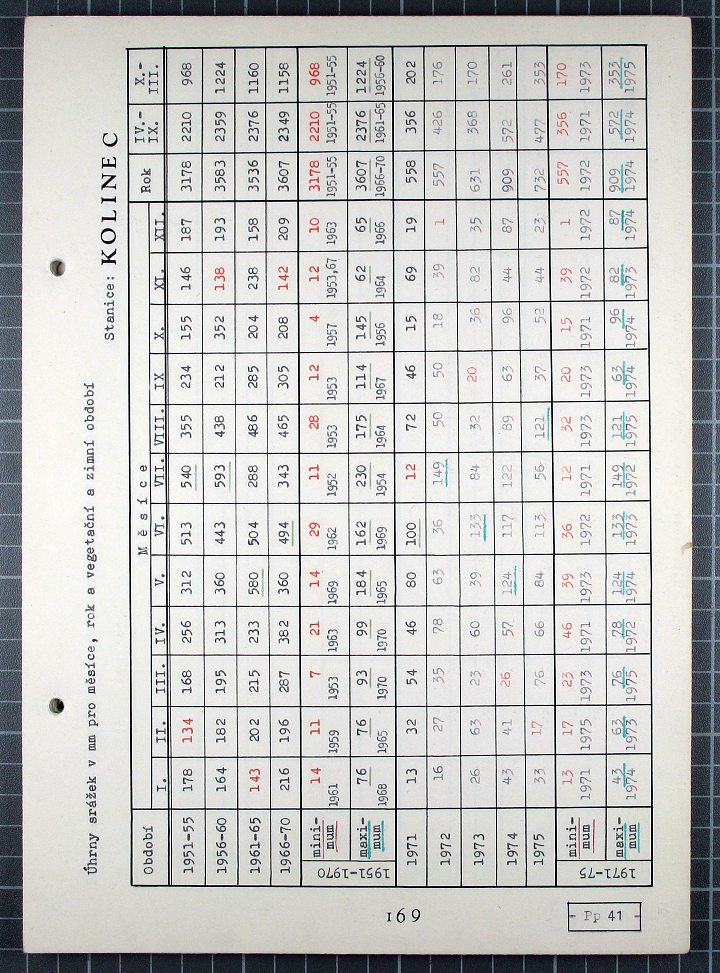 Úhrny srážek v mm pro měsíce, rok a vegetační a zimní období
Stanice: KOLINEC
Období Měsíce Rok IV.-IX. X.-III.
I. II. III. IV. V. VI. VII. VIII. IX X. XI. XII.
1951-55 178 134 168 256 312 513 540 355 234 155 146 187 3178 2210 968
1956-60 164 182 195 313 360 443 593 438 212 352 138 193 3583 2359 1224
1961-65 143 202 215 233 580 504 288 486 285 204 238 158 3536 2376 1160
1966-70 216 196 287 382 360 494 343 465 305 208 142 209 3607 2349 1158
1951-1970
mini-mum 14 11 7 21 14 29 11 28 12 4 12 10 3178 2210 968
1961 1959 1953 1963 1969 1962 1952 1953 1953 1957 1953,67 1963 1951-55 1951-55 1951-55
maxi-mum 76 76 93 99 184 162 230 175 114 145 62 65 3607 2376 1224
1968 1965 1970 1970 1965 1969 1954 1964 1967 1956 1964 1966 1966-70 1961-65 1956-60
1971 13 32 54 46 80 100 12 72 46 15 69 19 558 356 202
1972 16 27 35 78 63 36 149 50 50 18 39 1 557 426 176
1973 26 63 23 60 39 133 84 32 20 36 82 35 631 368 170
1974 43 41 26 57 124 117 122 89 63 96 44 87 909 572 261
1975 33 17 76 66 84 113 56 121 37 52 44 23 732 477 353
1971-75
mini-mum 13 17 23 46 39 36 12 32 20 15 39 1 557 356 170
1971 1975 1973 1971 1973 1972 1971 1973 1973 1971 1972 1972 1972 1971 1973
maxi-mum 43 63 76 78 124 133 149 121 63 96 82 87 909 572 353
1974 1973 1975 1972 1974 1973 1972 1975 1974 1974 1973 1974 1974 1974 1975
169
Pp 41